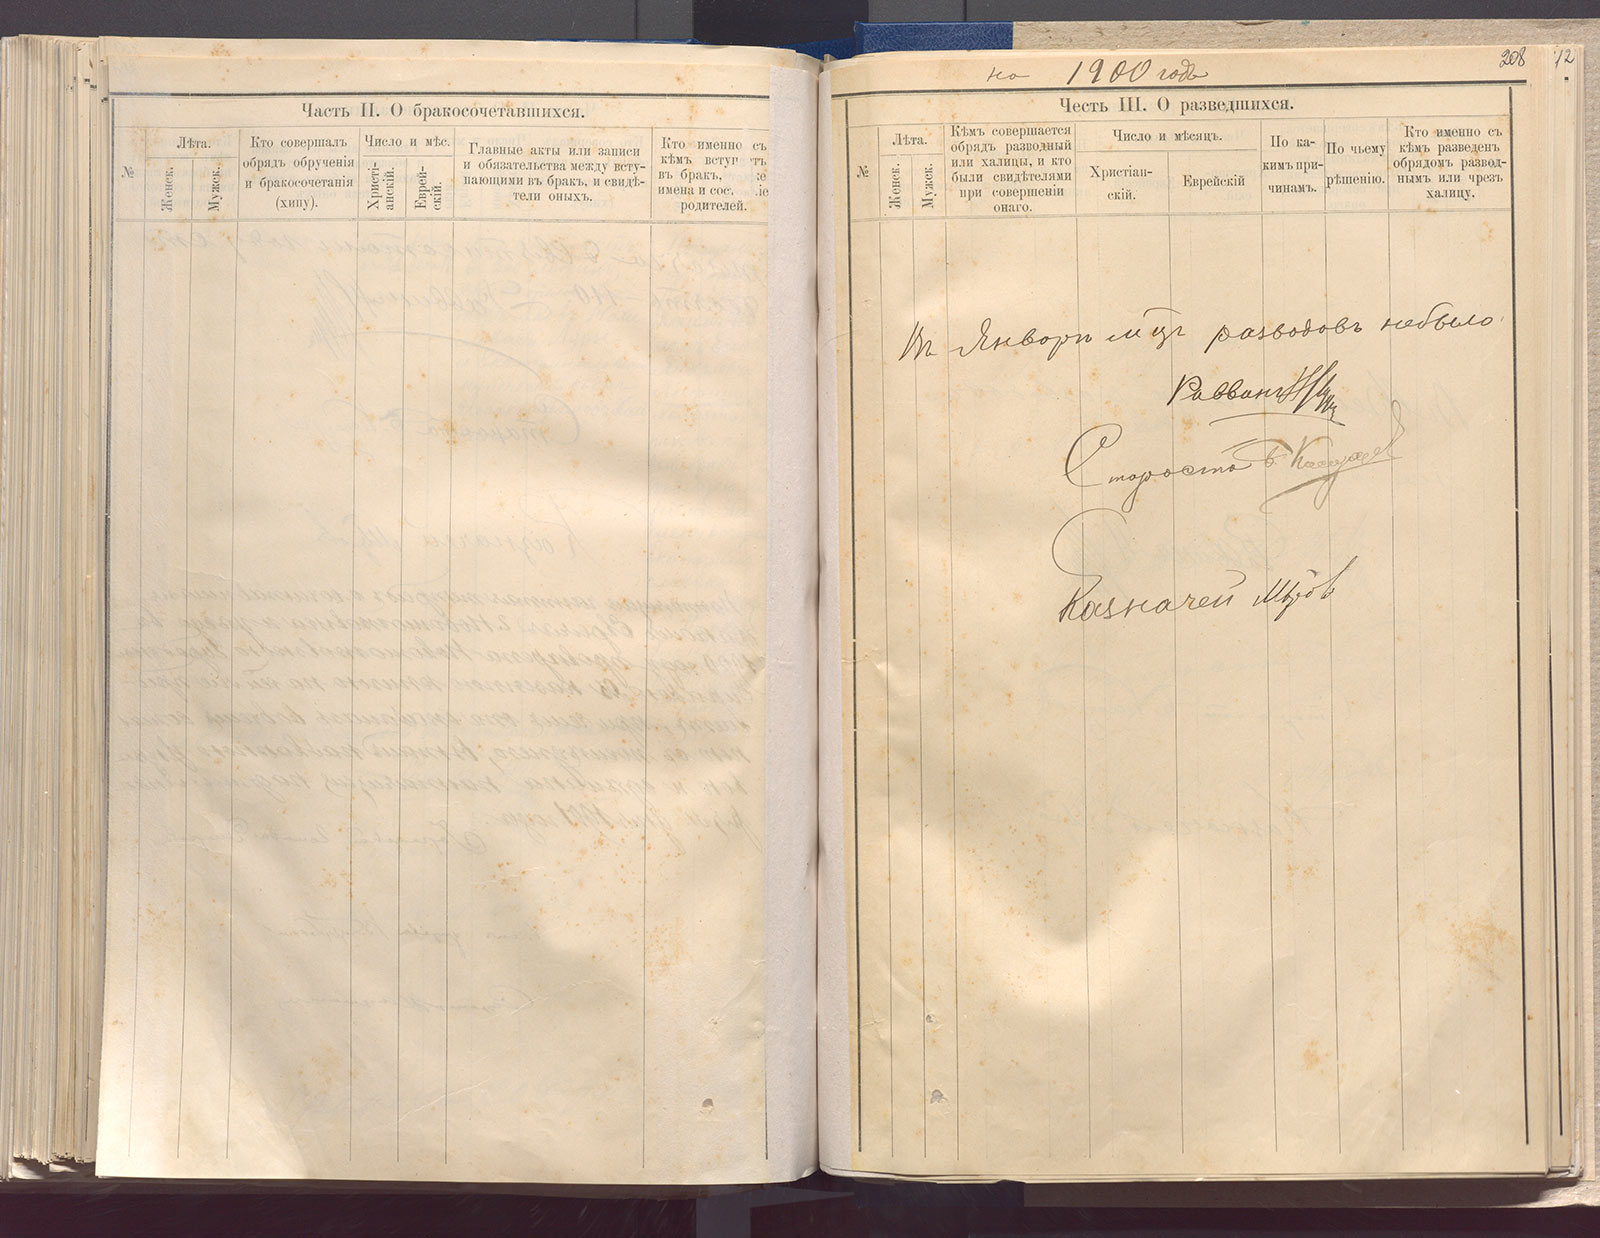 Часть II. О бракосочетавшихся.
№
Лѣта.
Женск.
Мужск.
Кто совершалъ
обрядъ обрученія
и бракосочетанія
(хипу).
Число и мѣс.
Христі-
анскій.
Еврей-
скій.
Главные акты или записи
и обязательства между всту-
пающими въ бракъ, и свидѣ-
тели оныхъ.
Кто именно съ
кѣмъ вступ
въ бракъ,
имена и сос.
родителей.
на 1900 годъ
208
12
Честь III. О разведшихся.
№
Лѣта.
Женск.
Мужск.
Кѣмъ совершается
обрядъ разводный
или халицы, и кто
были свидѣтелями
при совершеніи
онаго.
Число и мѣсяцъ.
Христіан-
скій.
Еврейскій
По ка-
кимъ при-
чинамъ.
По чьему
рѣшенію.
Кто именно съ
кѣмъ разведен
обрядомъ развод-
нымъ или чрезъ
халицу.
Въ Январѣ м-цѣ разводовъ небыло
Раввинъ
Староста
Казначей